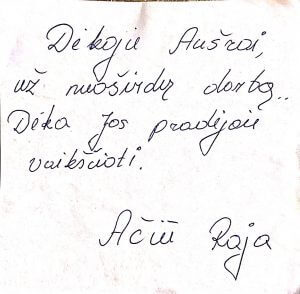 Dėkoju Aušrai,
už nuoširdų darbą..
Dėka Jos pradėjau
vaikščioti.
Ačiū Raja